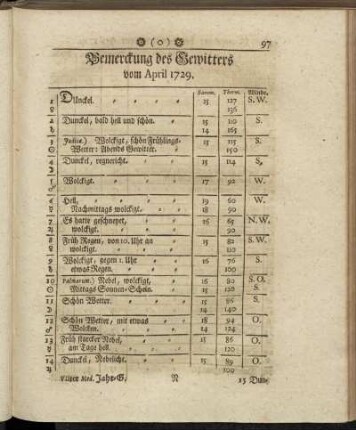 (o) 97
Bemerckung des Gewitters
vom April 1729.
Barom. Therm. Winde.
1 Dunckel. 15 127 S. W.
136
2 Dunckel, bald hell und schön. 15 S.
14 165
3 Judica.) Wolckigt, schön Frühlings- 15 115 S.
Wetter: Abends Gewitter. 150
4 Dunckel, regnericht. 15 114 S.
5 Wolckigt. 17 92 W.
6 Hell, 19 60 W.
Nachmittags wolckigt. 18 90
7 Es hatte geschneyet, 16 65 N. W.
wolckigt. 90
8 Früh Regen, von 10. Uhr an 15 82 S. W.
wolckigt. 100
9 Wolckigt, gegen 1. Uhr 16 76 S.
etwas Regen. 100
10 Palmarum.) Nebel, wolckigt, 16 80 S. O.
Mittags Sonnen-Schein. 15 128 S.
11 Schön Wetter. 15 S.
14 140
12 Schön Wetter, mit etwas 18 94 O.
Wolcken. 14 124
13 Früh starcker Nebel, 15 86 O.
am Tage hell. 120
14 Dunckel, Nebelicht. 15 89 O.
100
Jahr-G. N 15 Dun-